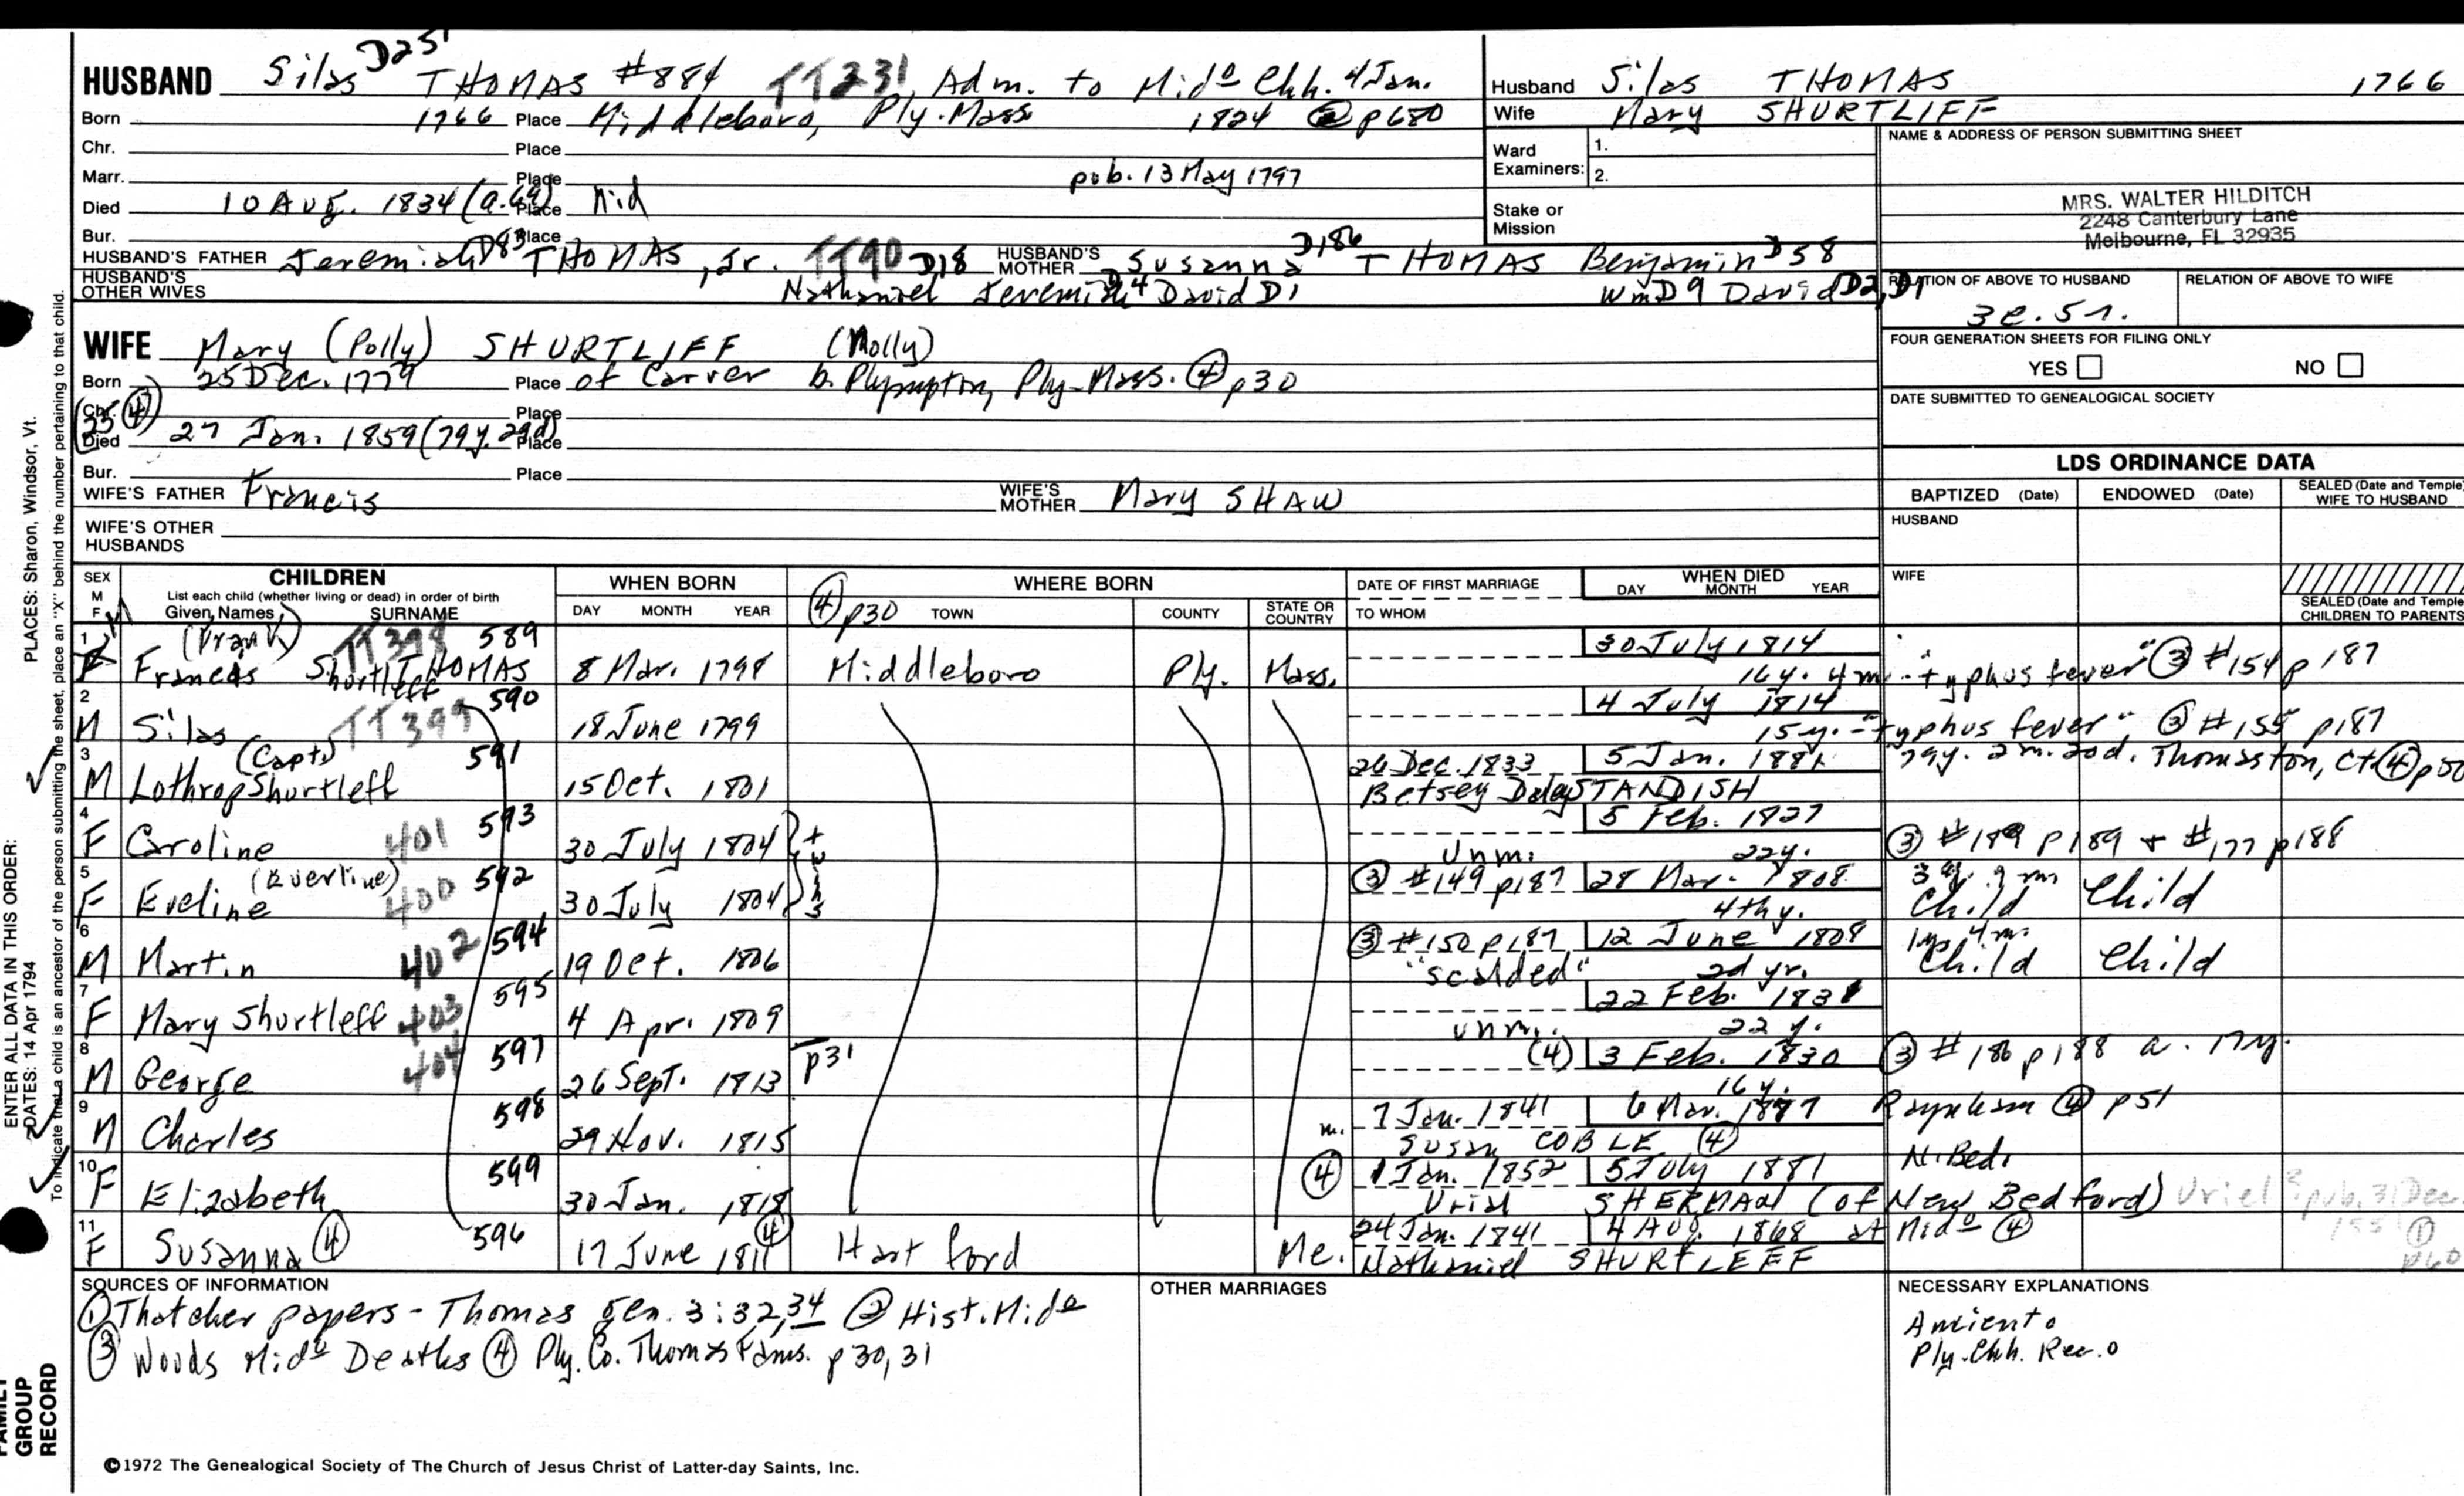 HUSBAND Silas D251 THOMAS #884 TT231, Adm. to Mido Chh. 4 Jan.
Born 1766 Place Middleboro, Ply. Mass 1824 @ p680
Chr. Place
Marr. Place pub. 13 May 1797
Died 10 Aug. 1834 (a.69) Place Mid
Bur. Place
HUSBAND'S FATHER Jeremiah D83 THOMAS, Jr. TT90 D18 HUSBAND'S MOTHER Susanna D186 THOMAS Benjamin D58
HUSBAND'S OTHER WIVES Nathaniel Jeremiah D4 David D1 Wm D9 David D2, D1
Husband Silas THOMAS 1766
Wife Mary SHURTLIFF
Ward Examiners: 1.
2.
Stake or Mission
NAME & ADDRESS OF PERSON SUBMITTING SHEET
MRS. WALTER HILDITCH
2248 Canterbury Lane
Melbourne, FL 32935
RELATION OF ABOVE TO HUSBAND RELATION OF ABOVE TO WIFE
3c.5r.
FOUR GENERATION SHEETS FOR FILING ONLY
YES NO
DATE SUBMITTED TO GENEALOGICAL SOCIETY
WIFE Mary (Polly) SHURTLIFF (Molly)
Born 25 Dec. 1779 Place of Carver b. Plympton, Ply-Mass. ④ p30
Chr. Place
(25 ④)
Died 27 Jan. 1859 (79y. 29d) Place
Bur. Place
WIFE'S FATHER Francis WIFE'S MOTHER Mary SHAW
WIFE'S OTHER HUSBANDS
LDS ORDINANCE DATA
BAPTIZED (Date) ENDOWED (Date) SEALED (Date and Temple) WIFE TO HUSBAND
HUSBAND
WIFE
SEALED (Date and Temple) CHILDREN TO PARENTS
SEX M F CHILDREN List each child (whether living or dead) in order of birth Given Names SURNAME
WHEN BORN DAY MONTH YEAR
WHERE BORN ④ p30 TOWN COUNTY STATE OR COUNTRY
DATE OF FIRST MARRIAGE TO WHOM
WHEN DIED DAY MONTH YEAR
1 M (Frank) TT398 589 30 July 1814
Francis Shurtleff THOMAS 8 Mar. 1798 Middleboro Ply. Mass. 16y. 4m - "typhus fever" ③ #154 p187
2 TT399 590 4 July 1814
M Silas 18 June 1799 15y. - "typhus fever" ③ #155 p187
3 (Capt) 591 26 Dec. 1833 5 Jan. 1881 79y. 2m. 20d. Thomaston, Ct ④ p50
M Lothrop Shurtleff 15 Oct. 1801 Betsey Daley STANDISH
4 593 5 Feb. 1827
F Caroline 401 30 July 1804 twins Unm. 22y. ③ #189 p189 + #177 p188
5 (Everline) 592 ③ #149 p187 28 Mar. 1808 3y. 9m
F Eveline 400 30 July 1804 4th y. Child Child
6 594 ③ #150 p187 12 June 1808 1y. 4m.
M Martin 402 19 Oct. 1806 "scalded" 2d yr. Child Child
7 595 22 Feb. 1831
F Mary Shurtleff 403 4 Apr. 1809 unm. 22 y.
8 597 p31 (4) 3 Feb. 1830 ③ #186 p188 a. 17y.
M George 404 26 Sept. 1813 16 y.
9 598 m. 7 Jan. 1841 6 Mar. 1877 Raynham ④ p51
M Charles 29 Nov. 1815 Susan COBLE ④
10 599 ④ 1 Jan. 1852 5 July 1881 N. Bed.
F Elizabeth 30 Jan. 1818 Urial SHERMAN (of New Bedford) Uriel? pub. 31 Dec.
11 596 ④ 24 Jan. 1841 4 Aug. 1868 at Mido ④ ①
F Susanna ④ 17 June 1811 Hartford Me. Nathaniel SHURTLEFF p60
SOURCES OF INFORMATION
① Thatcher papers - Thomas gen. 3:32,34 ② Hist. Mido
③ Woods Mido Deaths ④ Ply. Co. Thomas Fams. p 30, 31
OTHER MARRIAGES
NECESSARY EXPLANATIONS
Ancient
Ply. Chh. Rec.
©1972 The Genealogical Society of The Church of Jesus Christ of Latter-day Saints, Inc.
ENTER ALL DATA IN THIS ORDER:
DATES: 14 Apr 1794
PLACES: Sharon, Windsor, Vt.
To indicate that a child is an ancestor of the person submitting the sheet, place an "X" behind the number pertaining to that child.
FAMILY GROUP RECORD